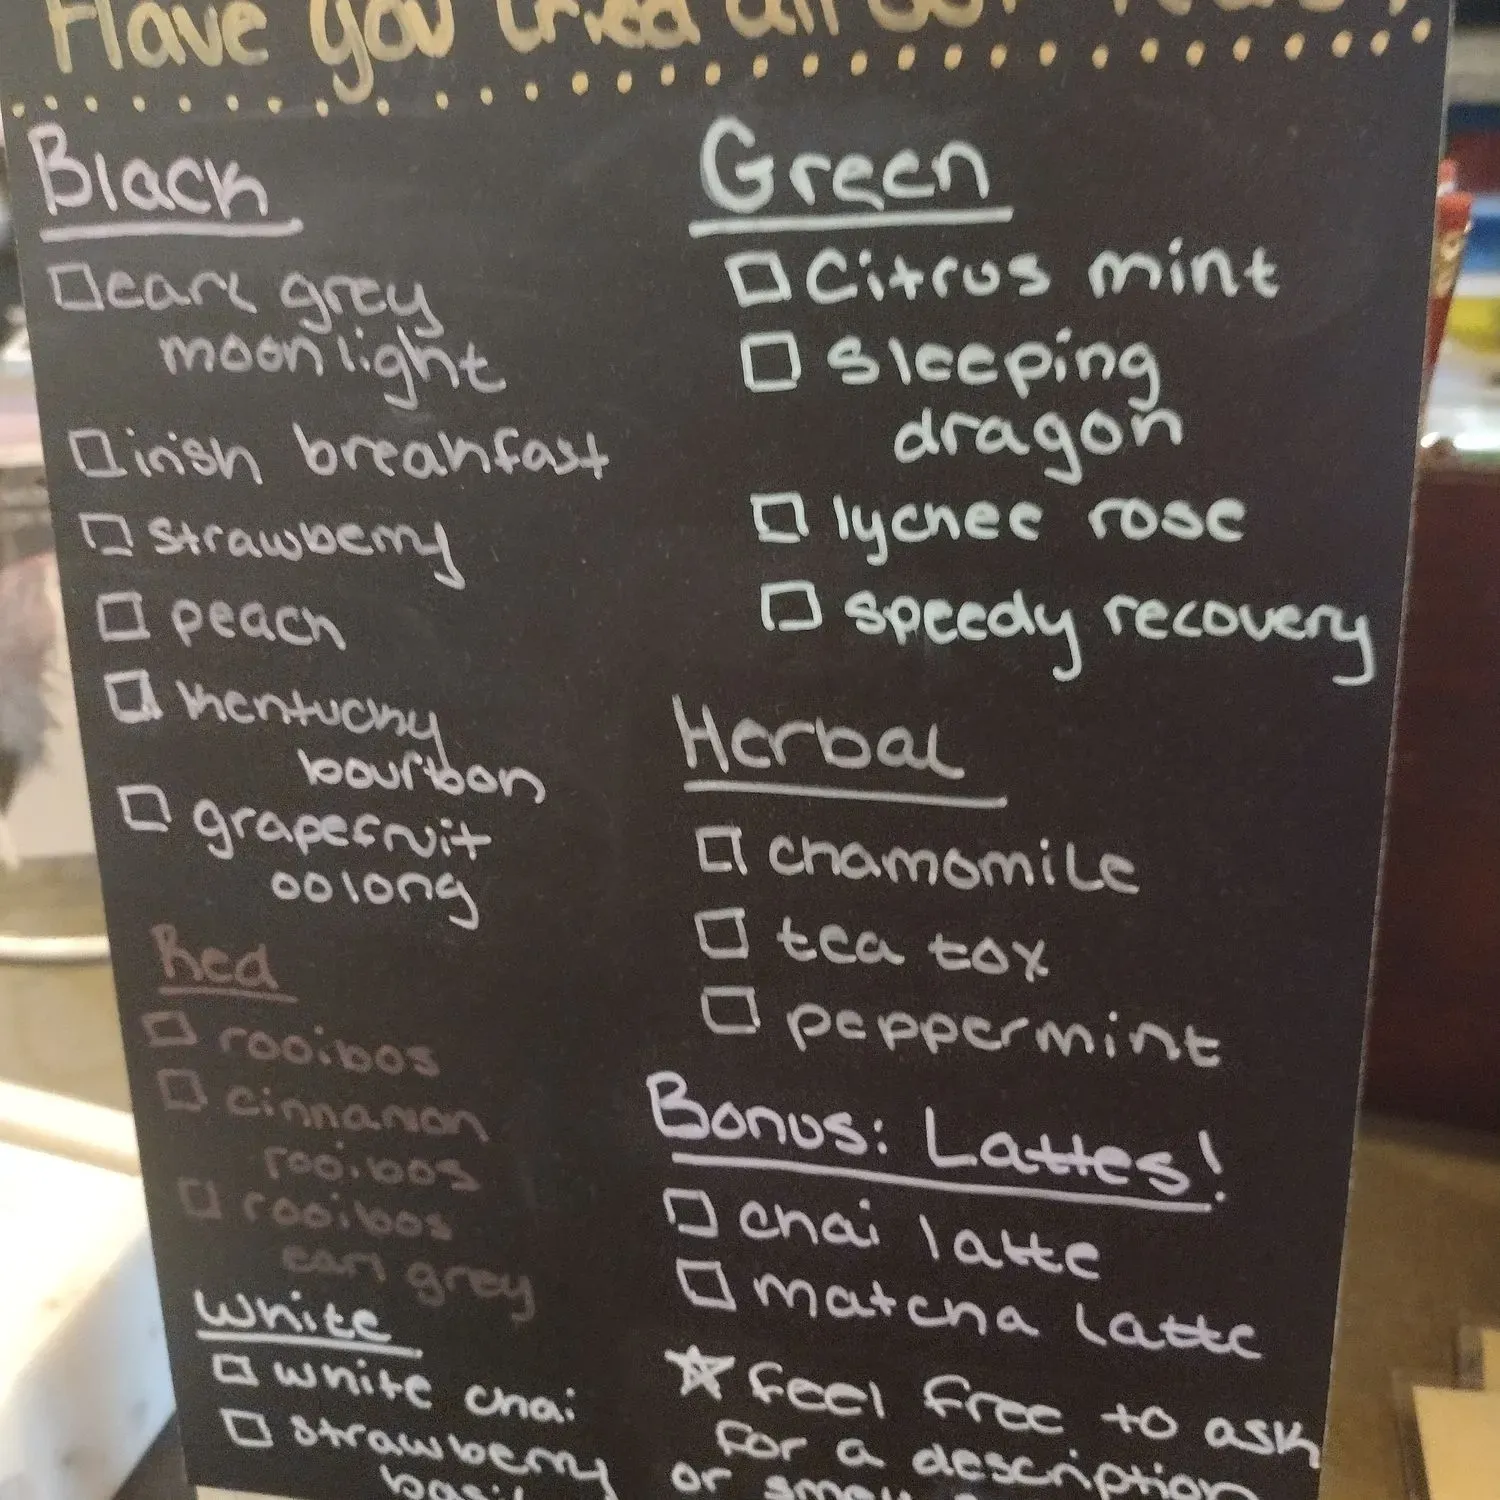 Have you tried all our teas?
Black
earl grey
moonlight
irish breakfast
strawberry
peach
kentucky
bourbon
grapefruit
oolong
Red
rooibos
cinnamon
rooibos
rooibos
earl grey
White
white chai
strawberry
basil
Green
Citrus mint
sleeping
dragon
lychee rose
speedy recovery
Herbal
chamomile
tea tox
peppermint
Bonus: Lattes!
chai latte
matcha latte
feel free to ask
for a description
or